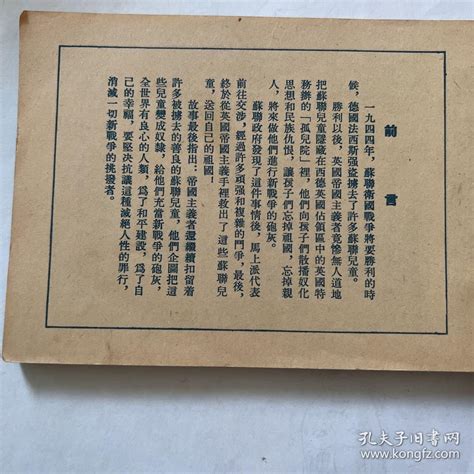 前言
一九四四年，蘇聯衛國戰爭將要勝利的時
候，德國法西斯強盜擄去了許多蘇聯兒童。
勝利以後，英國帝國主義者竟慘無人道地
把蘇聯兒童隱藏在西德英國佔領區中的英國特
務辦的「孤兒院」裡，他們向孩子們散播奴化
思想和民族仇恨，讓孩子們忘掉祖國，忘掉親
人，將來做他們進行新戰爭的砲灰。
蘇聯政府發現了這件事情後，馬上派代表
前往交涉，經過許多頑强和複雜的鬥爭，最後，
終於從英國帝國主義者手裡救出了這些蘇聯兒
童，送回自己的祖國！
故事最後指出：帝國主義者還繼續扣留着
許多被擄去的善良的蘇聯兒童，他們企圖把這
些兒童變成奴隸，給他們充當新戰爭的砲灰，
全世界有良心的人類，爲了和平建設，爲了自
己的幸福，要堅決抗議這種滅絕人性的罪行，
消滅一切新戰爭的挑撥者。
孔夫子旧书网
www.kongfz.com